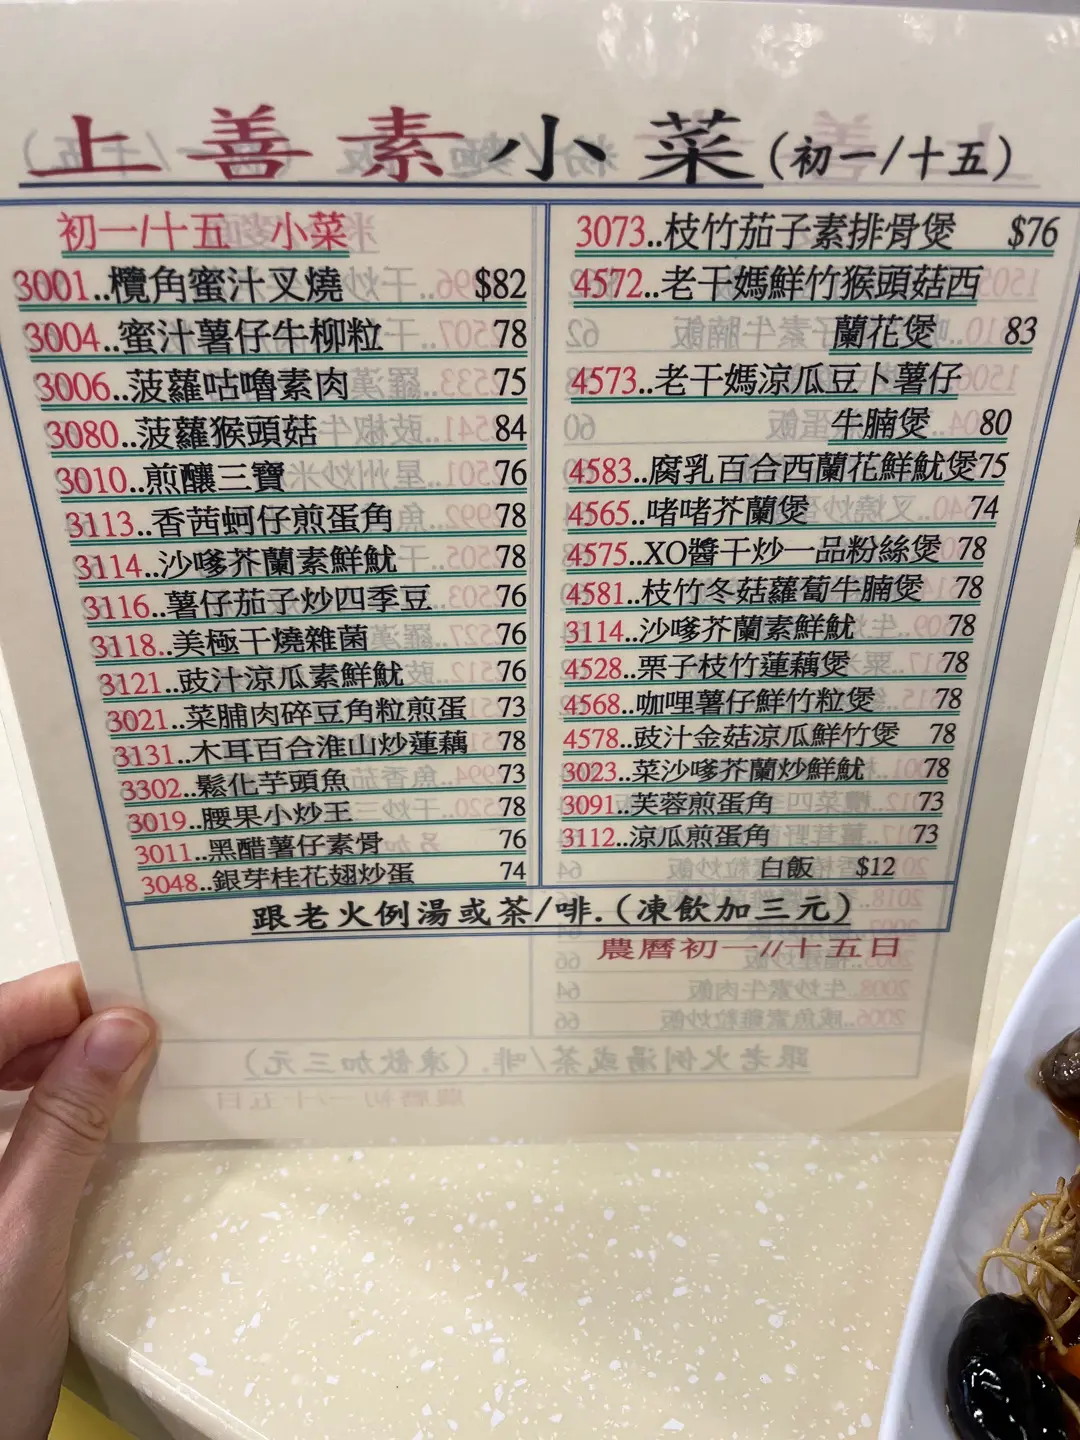 上善素小菜(初一/十五)
初一/十五 小菜
3001..欖角蜜汁叉燒 $82
3004..蜜汁薯仔牛柳粒 78
3006..菠蘿咕嚕素肉 75
3080..菠蘿猴頭菇 84
3010..煎釀三寶 76
3113..香茜蚵仔煎蛋角 78
3114..沙嗲芥蘭素鮮魷 78
3116..薯仔茄子炒四季豆 76
3118..美極干燒雜菌 76
3121..豉汁涼瓜素鮮魷 76
3021..菜脯肉碎豆角粒煎蛋 73
3131..木耳百合淮山炒蓮藕 78
3302..鬆化芋頭魚 73
3019..腰果小炒王 78
3011..黑醋薯仔素骨 76
3048..銀芽桂花翅炒蛋 74
3073..枝竹茄子素排骨煲 $76
4572..老干媽鮮竹猴頭菇西
蘭花煲 83
4573..老干媽涼瓜豆卜薯仔
牛腩煲 80
4583..腐乳百合西蘭花鮮魷煲75
4565..啫啫芥蘭煲 74
4575..XO醬干炒一品粉絲煲 78
4581..枝竹冬菇蘿蔔牛腩煲 78
3114..沙嗲芥蘭素鮮魷 78
4528..栗子枝竹蓮藕煲 78
4568..咖哩薯仔鮮竹粒煲 78
4578..豉汁金菇涼瓜鮮竹煲 78
3023..菜沙嗲芥蘭炒鮮魷 78
3091..芙蓉煎蛋角 73
3112..涼瓜煎蛋角 73
白飯 $12
跟老火例湯或茶/啡.(凍飲加三元)
農曆初一//十五日